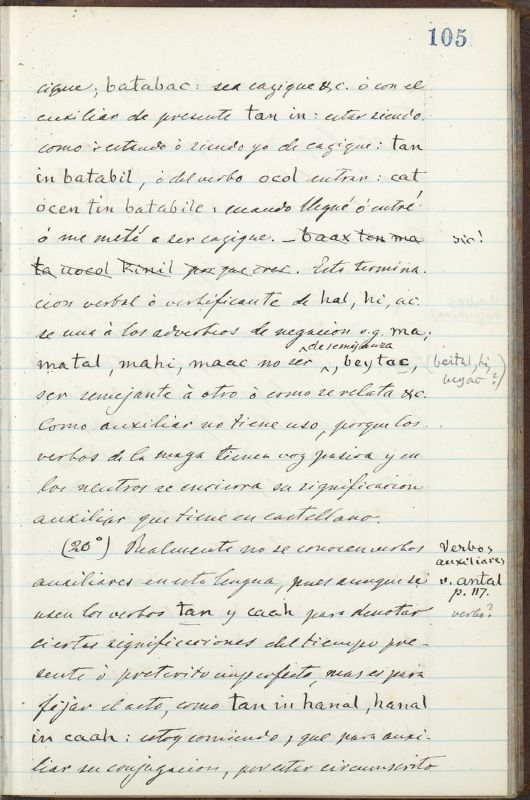 105
cique; batabac: sea cazique &c. ó con el
auxiliar de presente tan in: estar siendo.
como estando ó siendo yo de cazique: tan
in batabil, ó del verbo ocol entrar: cat
ocen tin batabile: cuando llegué ó entré
ó me metí a ser cazique. – baax ten ma
sic!
ta uocol kinil por que eres. Esta termina-
cion verbal ó verbificante de hal, hi, ac
se una á los adverbios de negacion v.g. ma;
matal, mahi, maac no ser, de semejanza, beytac,
(beital, hi, beyac?)
ser semejante á otro ó como se relata &c.
Como auxiliar no tiene uso, porque los
verbos de la maya tienen voz pasiva y en
los neutros se encierra su significacion
auxiliar que tiene en castellano.
(20°) Realmente no se conocen verbos
Verbos
auxiliares
auxiliares en esta lengua, pues aunque se
v. antal
p. 117.
usen los verbos tan y caah para denotar
verbo?
ciertas significaciones del tiempo pre-
sente ó preterito imperfecto, mas es para
fijar el acto, como tan in hanal, hanal
in caah: estoy comiendo; que para auxi-
liar su conjugacion, por estar circunscrito